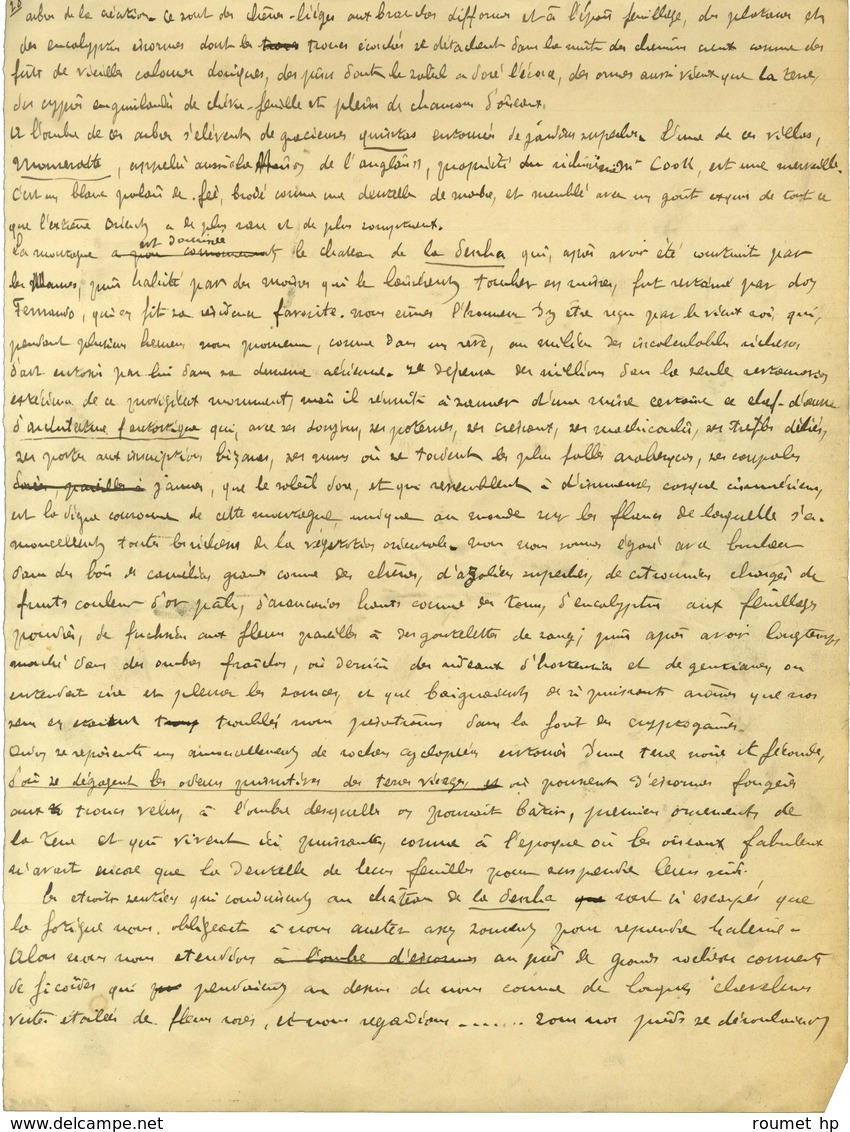 20
arbres de la création. Ce sont des chênes-lièges aux branches difformes et à l'épais feuillage, des platanes et
des eucalyptus énormes dont les troncs écorchés se détachent dans la nuit des chemins creux comme des
fûts de vieilles colonnes doriques, des pins dont le soleil a doré l'écorce, des ormes aussi vieux que la terre,
des cyprès enguirlandés de chèvre-feuille et pleins de chansons d'oiseaux.
A l'ombre de ces arbres s'élèvent de gracieuses quintas entourées de jardins superbes. L'une de ces villas,
Monserrate, appelée aussi la de l'anglais, propriété du richissime Mr Cook, est une merveille.
C'est un blanc palais de fée, brodé comme une dentelle de marbre, et meublé avec un goût exquis de tout ce
que l'extrême Orient a de plus rare et de plus somptueux.
La montagne est dominée le chateau de la Penha qui, après avoir été construit par
les Maures, puis habité par des moines qui le laissèrent tomber en ruines, fut restauré par dom
Fernando, qui en fit sa résidence favorite. Nous eûmes l'honneur d'y être reçu par le vieux roi, qui,
pendant plusieurs heures nous promena, comme dans un rêve, au milieu des incalculables richesses
d'art entassées par lui dans sa demeure aérienne. Il dépensa des millions dans la seule restauration
extérieure de ce prodigieux monument, mais il réussit à sauver d'une ruine certaine ce chef-d'oeuvre
d'architecture fantastique qui, avec ses donjons, ses poternes, ses créneaux, ses machicoulis, ses trèfles déliés,
ses portes aux inscriptions bizarres, ses murs où se tordent les plus folles arabesques, ses coupoles
dorées, pareilles à jaunes, que le soleil dore, et qui ressemblent à d'immenses casques cimmériens,
est la digne couronne de cette montagne unique au monde sur les flancs de laquelle s'a-
moncellent toutes les richesses de la végétation orientale. Nous nous sommes égaré avec bonheur
dans des bois de camélias grands comme des chênes, d'azalées superbes, de citronniers chargés de
fruits couleur d'or pâle, d'araucarias hauts comme des tours, d'eucalyptus aux feuillages
poudrés, de fuchsias aux fleurs pareilles à des gouttelettes de sang; puis après avoir longtemps
marché dans des ombres fraîches, où derrière des rideaux d'hortensias et de gentianes on
entendait rire et pleurer les sources, et que baignaient de si puissants arômes que nos
sens en étaient troublés nous pénétrâmes dans la forêt des cryptogames.
Qu'on se représente un amoncellement de roches cyclopéennes entourées d'une terre noire et féconde,
d'où se dégagent les odeurs primitives des terres vierges, et où poussent d'énormes fougères
aux troncs velus, à l'ombre desquelles on pourrait bâtir, premiers ornements de
la terre et qui vivent ici puissantes, comme à l'époque où les oiseaux fabuleux
n'avait encore que la dentelle de leurs feuilles pour suspendre leurs nids.
Les étroits sentiers qui conduisent au château de la Penha sont si escarpés que
la fatigue nous obligeait à nous arrêter assez souvent pour reprendre haleine.
Alors nous nous étendions à l'ombre d'énormes au pied de grands rochers couverts
de ficoïdes qui pendaient au dessus de nous comme de longues chevelures
vertes étoilées de fleurs roses, et nous regardions ....... sous nos pieds se déroulaient
roumet hp